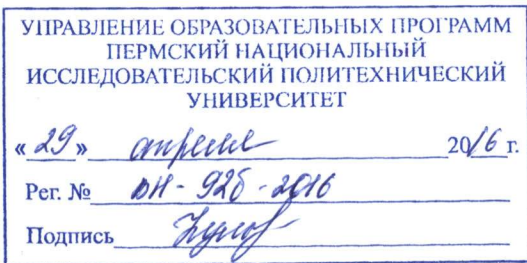 УПРАВЛЕНИЕ ОБРАЗОВАТЕЛЬНЫХ ПРОГРАММ
ПЕРМСКИЙ НАЦИОНАЛЬНЫЙ
ИССЛЕДОВАТЕЛЬСКИЙ ПОЛИТЕХНИЧЕСКИЙ
УНИВЕРСИТЕТ
«29» апреля 2016 г.
Рег. № ВН-926-2016
Подпись